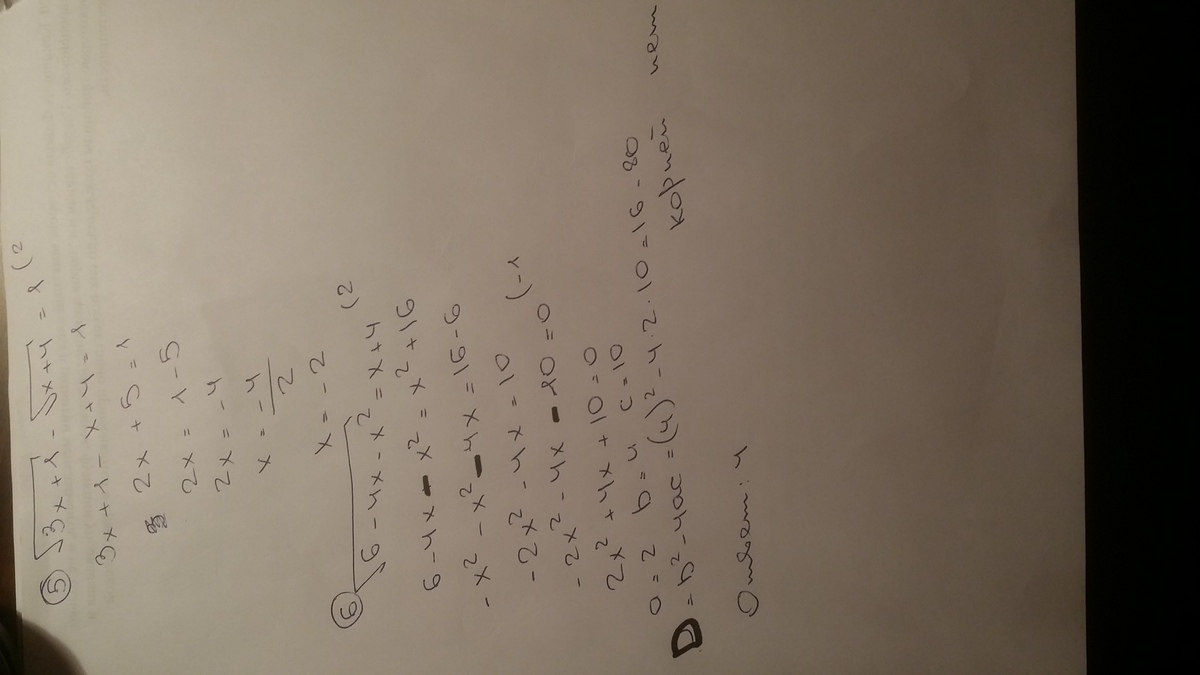 ⑤ √3x+1 - √x+4 = 1 (2
3x+1 - x+4 = 1
2x + 5 = 1
2x = 1-5
2x = -4
x = -4/2
x = -2
⑥ √6-4x-x² = x+4 (2
6-4x-x² = x²+16
-x²-x²-4x = 16-6
-2x²-4x = 10 (-1
-2x²-4x-10=0
2x²+4x+10=0
a=2 b=4 c=10
D=b²-4ac=(4)²-4·2·10=16-80
корней нет
Ответ: 4